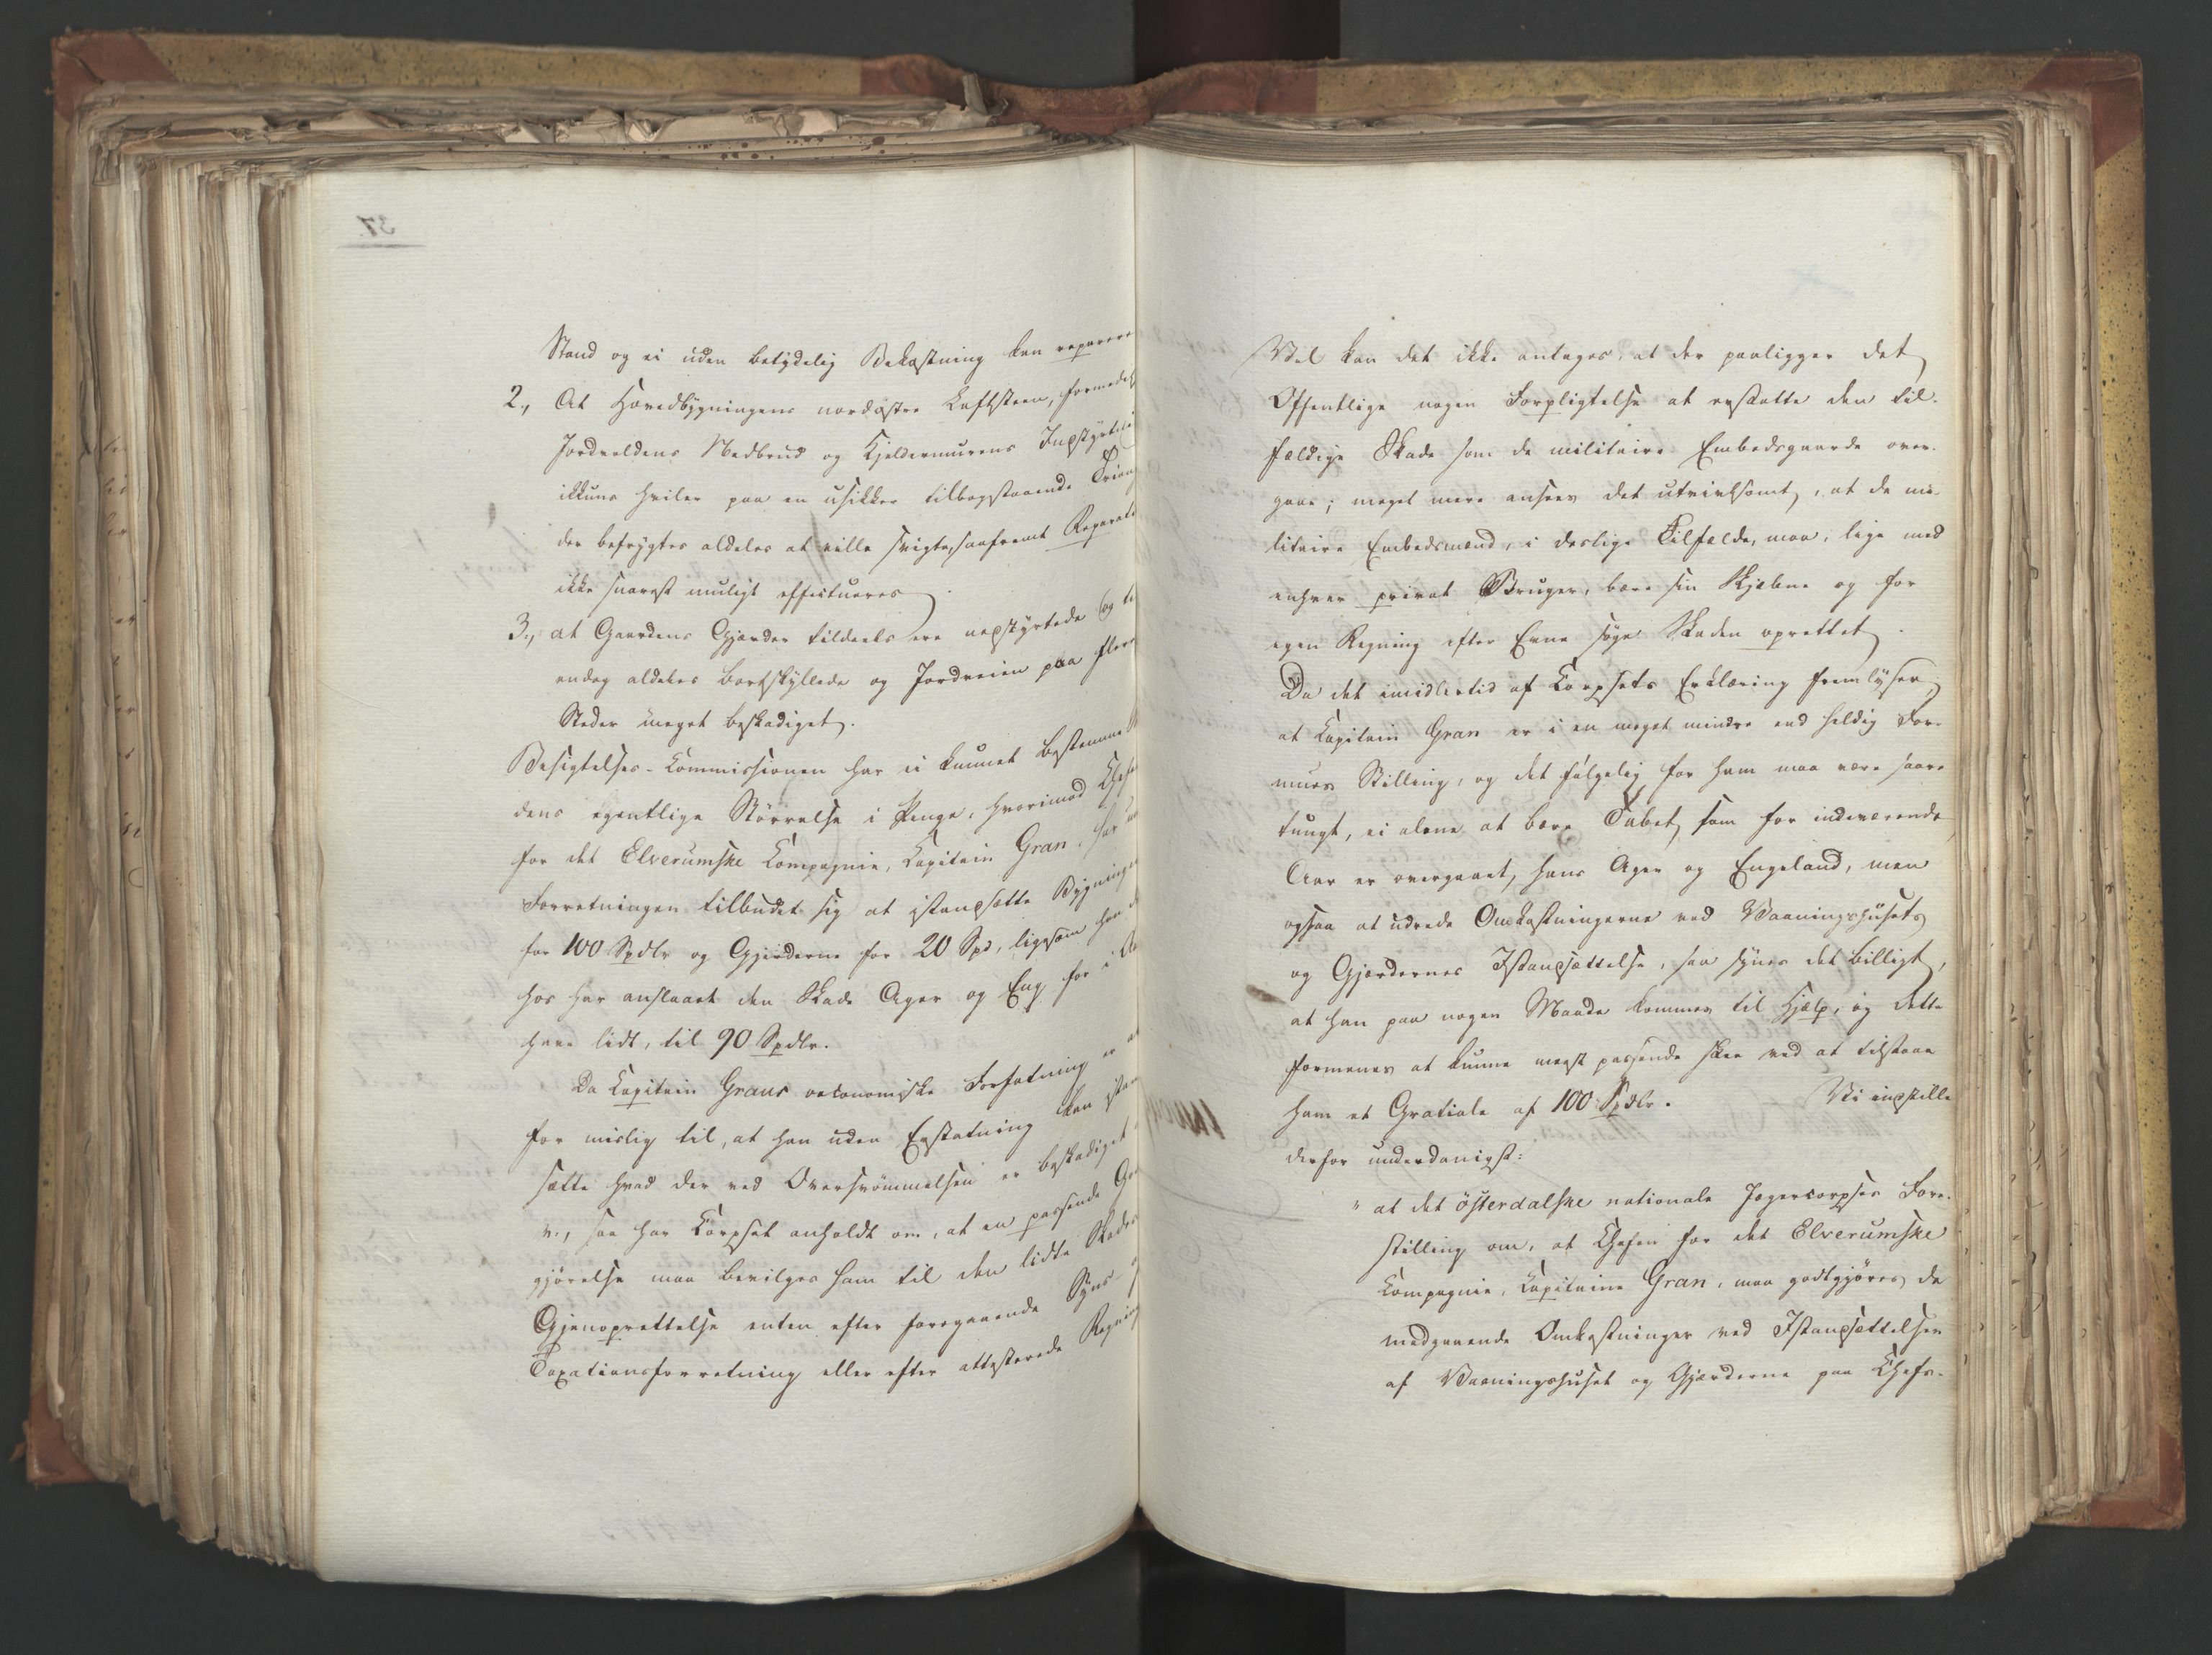 Stand og ei uden betydelig Bekostning kan reparere
2., At Hovedbygningens nordøstre Luftsteen, formedels
Jordvoldens Nedbrud og Kjeldermurens Indstyrtni
ikkuns hviler paa en usikker tilbagestaaende
der befrygtes aldeles at ville svigte, saafremt Reparati
ikke snarest muligt effectueres.
3., at Gaardens Gjærder tildeels ere nedstyrtede og ti
endog aldeles bortskyllede og Jordveien paa flere
Steder meget beskadiget.
Besigtelses-Commissionen har ei kunnet bestemme
dens egentlige Størrelse i Penge, hvorimod Chefen
for det Elverumske Compagnie, Capitain Gran, har
Forretningen tilbudet sig at istandsætte Bygninge
for 100 Spdlr og Gjerderne for 20 Spd, ligesom han
hos har anslaaet den Skade Ager og Eng for i
have lidt, til 90 Spdlr.
Da Capitain Grans oeconomiske Forfatning er
for mislig til, at han uden Erstatning kan istan
sætte hvad der ved Oversvømmelsen er beskadiget
saa har Corpset anholdt om, at en passende Go
gjörelse maa bevilges ham til den lidte Skades
Gjenoprettelse enten efter foregaaende Syns-
Taxationsforretning eller efter attesterede Regning
Vel kan det ikke antages, at der paaligger det
Offentlige nogen Forpligtelse at erstatte den til-
fældige Skade som de militaire Embedsgaarde over-
gaae; meget mere ansees det utvivlsomt, at de mi-
litaire Embedsmænd, i deslige Tilfælde, maa, lige med
enhver privat Bruger, bære sin Skjæbne og for
egen Regning efter Evne søge Skaden oprettet.
Da det imidlertid af Corpsets Erklæring fremlyser
at Capitain Gran er i en meget mindre end heldig For-
mues Stilling, og det følgelig for ham maa være saare
tungt, ei alene at bære Tabet som for indeværende
Aar er overgaaet hans Ager og Engeland, men
ogsaa at udrede Omkostningerne ved Vaaningshusets
og Gjerdernes Istandsættelse, saa synes det billigt,
at han paa nogen Maade kommes til Hjælp, og dette
formenes at kunne meest passende skee ved at tilstaae
ham et Gratiale af 100 Spdlr. Vi indstille
derfor underdanigst:
"at det österdalske nationale Jægercorpses Fore-
stilling om, at Chefen for det Elverumske
Compagnie, Capitaine Gran, maa godtgjøres de
medgaaende Omkostninger ved Istandsættelsen
af Vaaningshuset og Gjærderne paa Chefs-